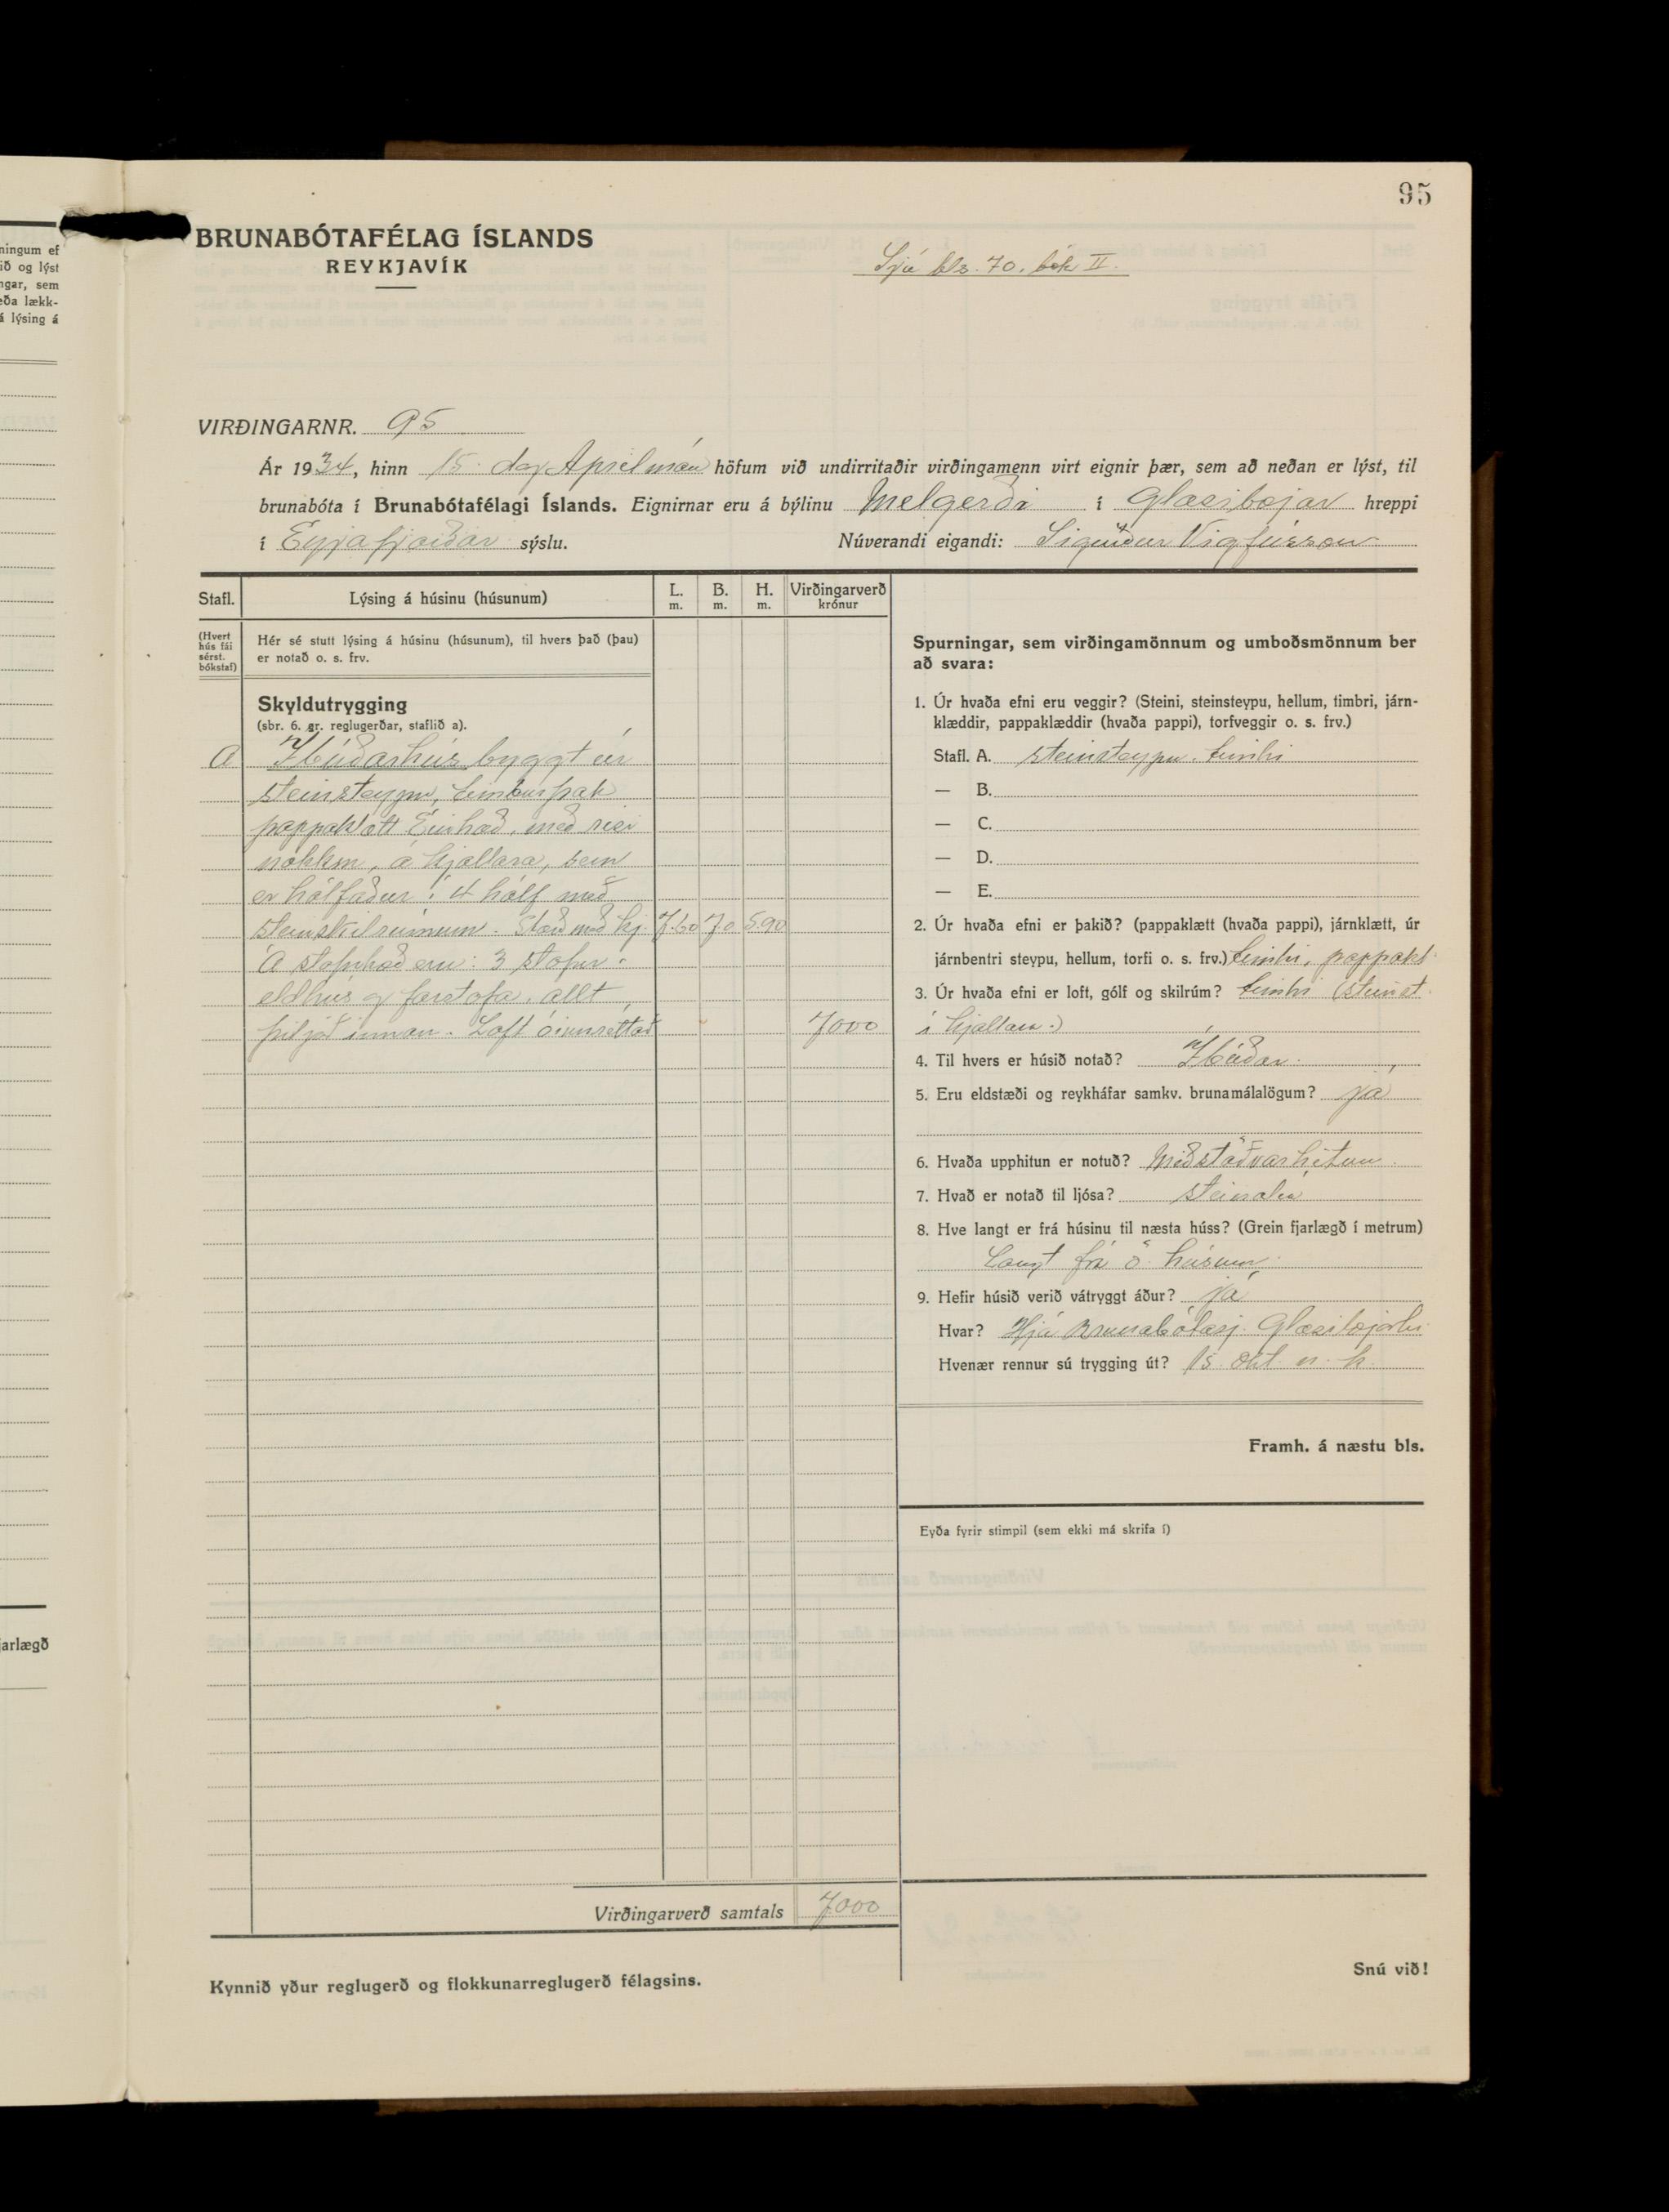 95
BRUNABÓTAFÉLAG ÍSLANDS
REYKJAVÍK
Sjá bls. 70. bók II.
VIRÐINGARNR. 95
Ár 1934, hinn 15. dag Aprílmán höfum við undirritaðir virðingamenn virt eignir þær, sem að neðan er lýst, til
brunabóta í Brunabótafélagi Íslands. Eignirnar eru á býlinu Melgerði í Glæsibæjar hreppi
í Eyjafjarðar sýslu. Núverandi eigandi: Sigurður Vigfússon
Stafl. Lýsing á húsinu (húsunum) L. m. B. m. H. m. Virðingarverð krónur
(Hvert hús fái sérst. bókstaf)
Hér sé stutt lýsing á húsinu (húsunum), til hvers það (þau)
er notað o. s. frv.
Skyldutrygging
(sbr. 6. gr. reglugerðar, staflið a).
A Íbúðarhús byggt úr
steinsteypu, timburþak
pappaklætt Einhæð, með risi
nokkru, á kjallara, sem
er hólfaður í 4 hólf með
steinskilrúmum. Stærð með kj. 7.60 7.0 5.90
Á stofuhæð eru: 3 stofur
eldhús og forstofa, allt
þiljað innan. Loft óinnréttað 7000
Virðingarverð samtals 7000
Kynnið yður reglugerð og flokkunarreglugerð félagsins.
Spurningar, sem virðingamönnum og umboðsmönnum ber
að svara:
1. Úr hvaða efni eru veggir? (Steini, steinsteypu, hellum, timbri, járn-
klæddir, pappaklæddir (hvaða pappi), torfveggir o. s. frv.)
Stafl. A. steinsteypu. timbri
— B.
— C.
— D.
— E.
2. Úr hvaða efni er þakið? (pappaklætt (hvaða pappi), járnklætt, úr
járnbentri steypu, hellum, torfi o. s. frv.) timbri, pappakl.
3. Úr hvaða efni er loft, gólf og skilrúm? timbri (steinst.
í kjallara.)
4. Til hvers er húsið notað? Íbúðar.
5. Eru eldstæði og reykháfar samkv. brunamálalögum? já
6. Hvaða upphitun er notuð? Miðstöðvarhitun.
7. Hvað er notað til ljósa? steinolía
8. Hve langt er frá húsinu til næsta húss? (Grein fjarlægð í metrum)
Langt frá ö. húsum.
9. Hefir húsið verið vátryggt áður? já
Hvar? Hjá Brunabótasj. Glæsibæjarhr.
Hvenær rennur sú trygging út? 15. Okt. n. k.
Framh. á næstu bls.
Eyða fyrir stimpil (sem ekki má skrifa í)
Snú við!
ningum ef
ið og lýst
ngar, sem
eða lækk-
á lýsing á
arlægð